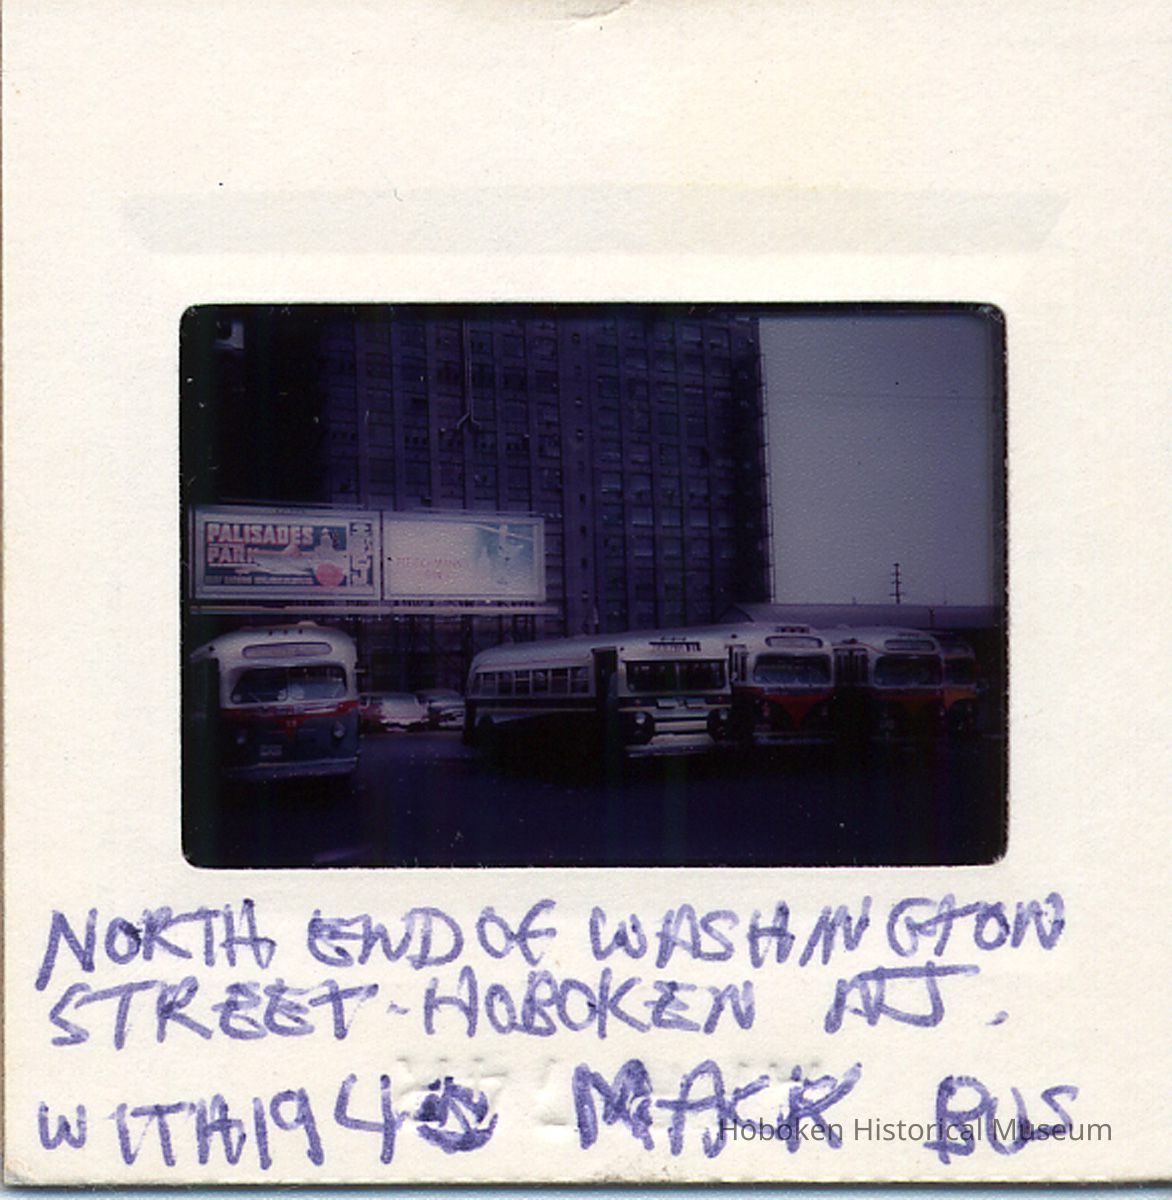 PALISADES
PARK
NORTH END OF WASHINGTON
STREET-HOBOKEN NJ.
WITH 1945 MACK BUS
Hoboken Historical Museum